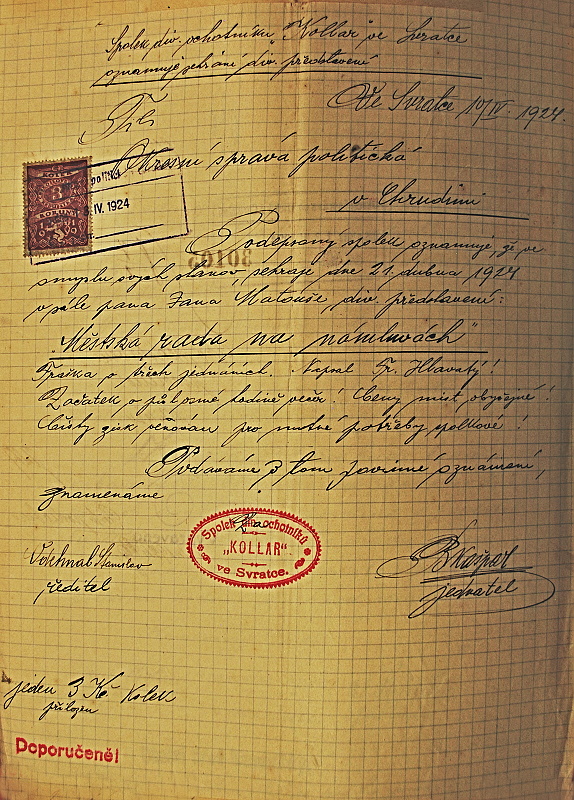 Spolek div. ochotníků „Kollar" ve Svratce
oznamuje sehrání div. představení
Ve Svratce 10/IV. 1924.
Okresní správa politická
v Chrudimi
3
KORUNY
IV. 1924
30105
Podepsaný spolek oznamuje, že ve
smyslu svých stanov, sehraje dne 21. dubna 1924
v sále pana Jana Matouše, div. představení:
„Městská rada na námluvách"
Fraška o třech jednáních. Napsal Fr. Hlavatý!
Začátek o půl osmé hodině večer! Ceny míst obyčejné!
Čistý zisk věnován pro nutné potřeby spolkové!
Podáváme z tom zdvořilé oznámení,
znamenáme
Spolek div. ochotníků
„KOLLAR"
ve Svratce.
Stanislav
ředitel
Kašpar
jednatel
jeden 3 Kč kolek
přiložen
Doporučeně!